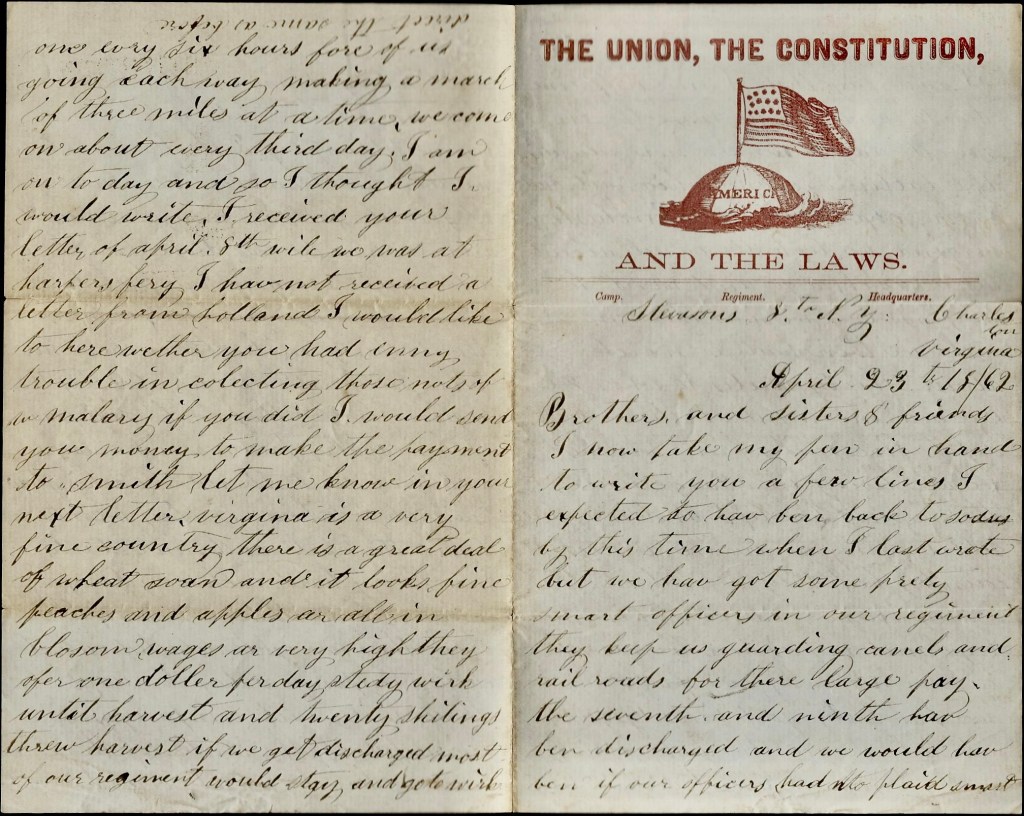 THE UNION, THE CONSTITUTION,
AMERICA
AND THE LAWS.
Camp. Regiment. Headquarters.
Stevasons 8.th N. Y. Charles
ton
virginia
April 23 th 18/62
Brothers and sisters & friends
I now take my pen in hand
to write you a few lines I
expected to hav ben back to sodus
by this time when I last wrote
but we hav got some prety
smart officers in our regiment
they keep us guarding canels and
rail roads for there large pay
the seventh and ninth hav
ben discharged and we would hav
ben if our officers had not plaid smart
direct the same as before
one evry six hours fore of us
going each way making a march
of three miles at a time, we come
on about every third day, I am
on to day and so I thought I
would write, I received your
letter of april 8th wile we was at
harpers fery I hav not received a
letter from holland I would like
to here wether you had enny
trouble in colecting those nots of
w malary if you did I would send
you money to make the payment
to smith let me know in your
next letter, virgina is a very
fine country there is a great deal
of wheat soan and it looks fine
peaches and apples ar all in
blosom, wages ar very high they
ofer one doller per day stedy wirk
until harvest and twenty shilings
threw harvest if we get discharged most
of our regiment would stay and go to wirk